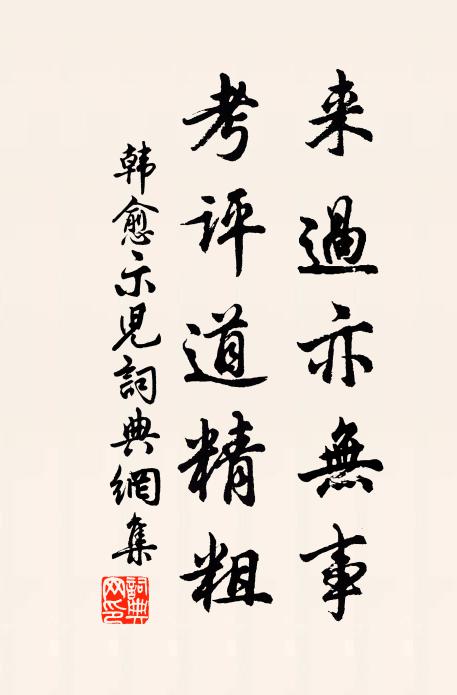 来過亦無事
考評道精粗
韓愈示児詞典網集
詞典网印